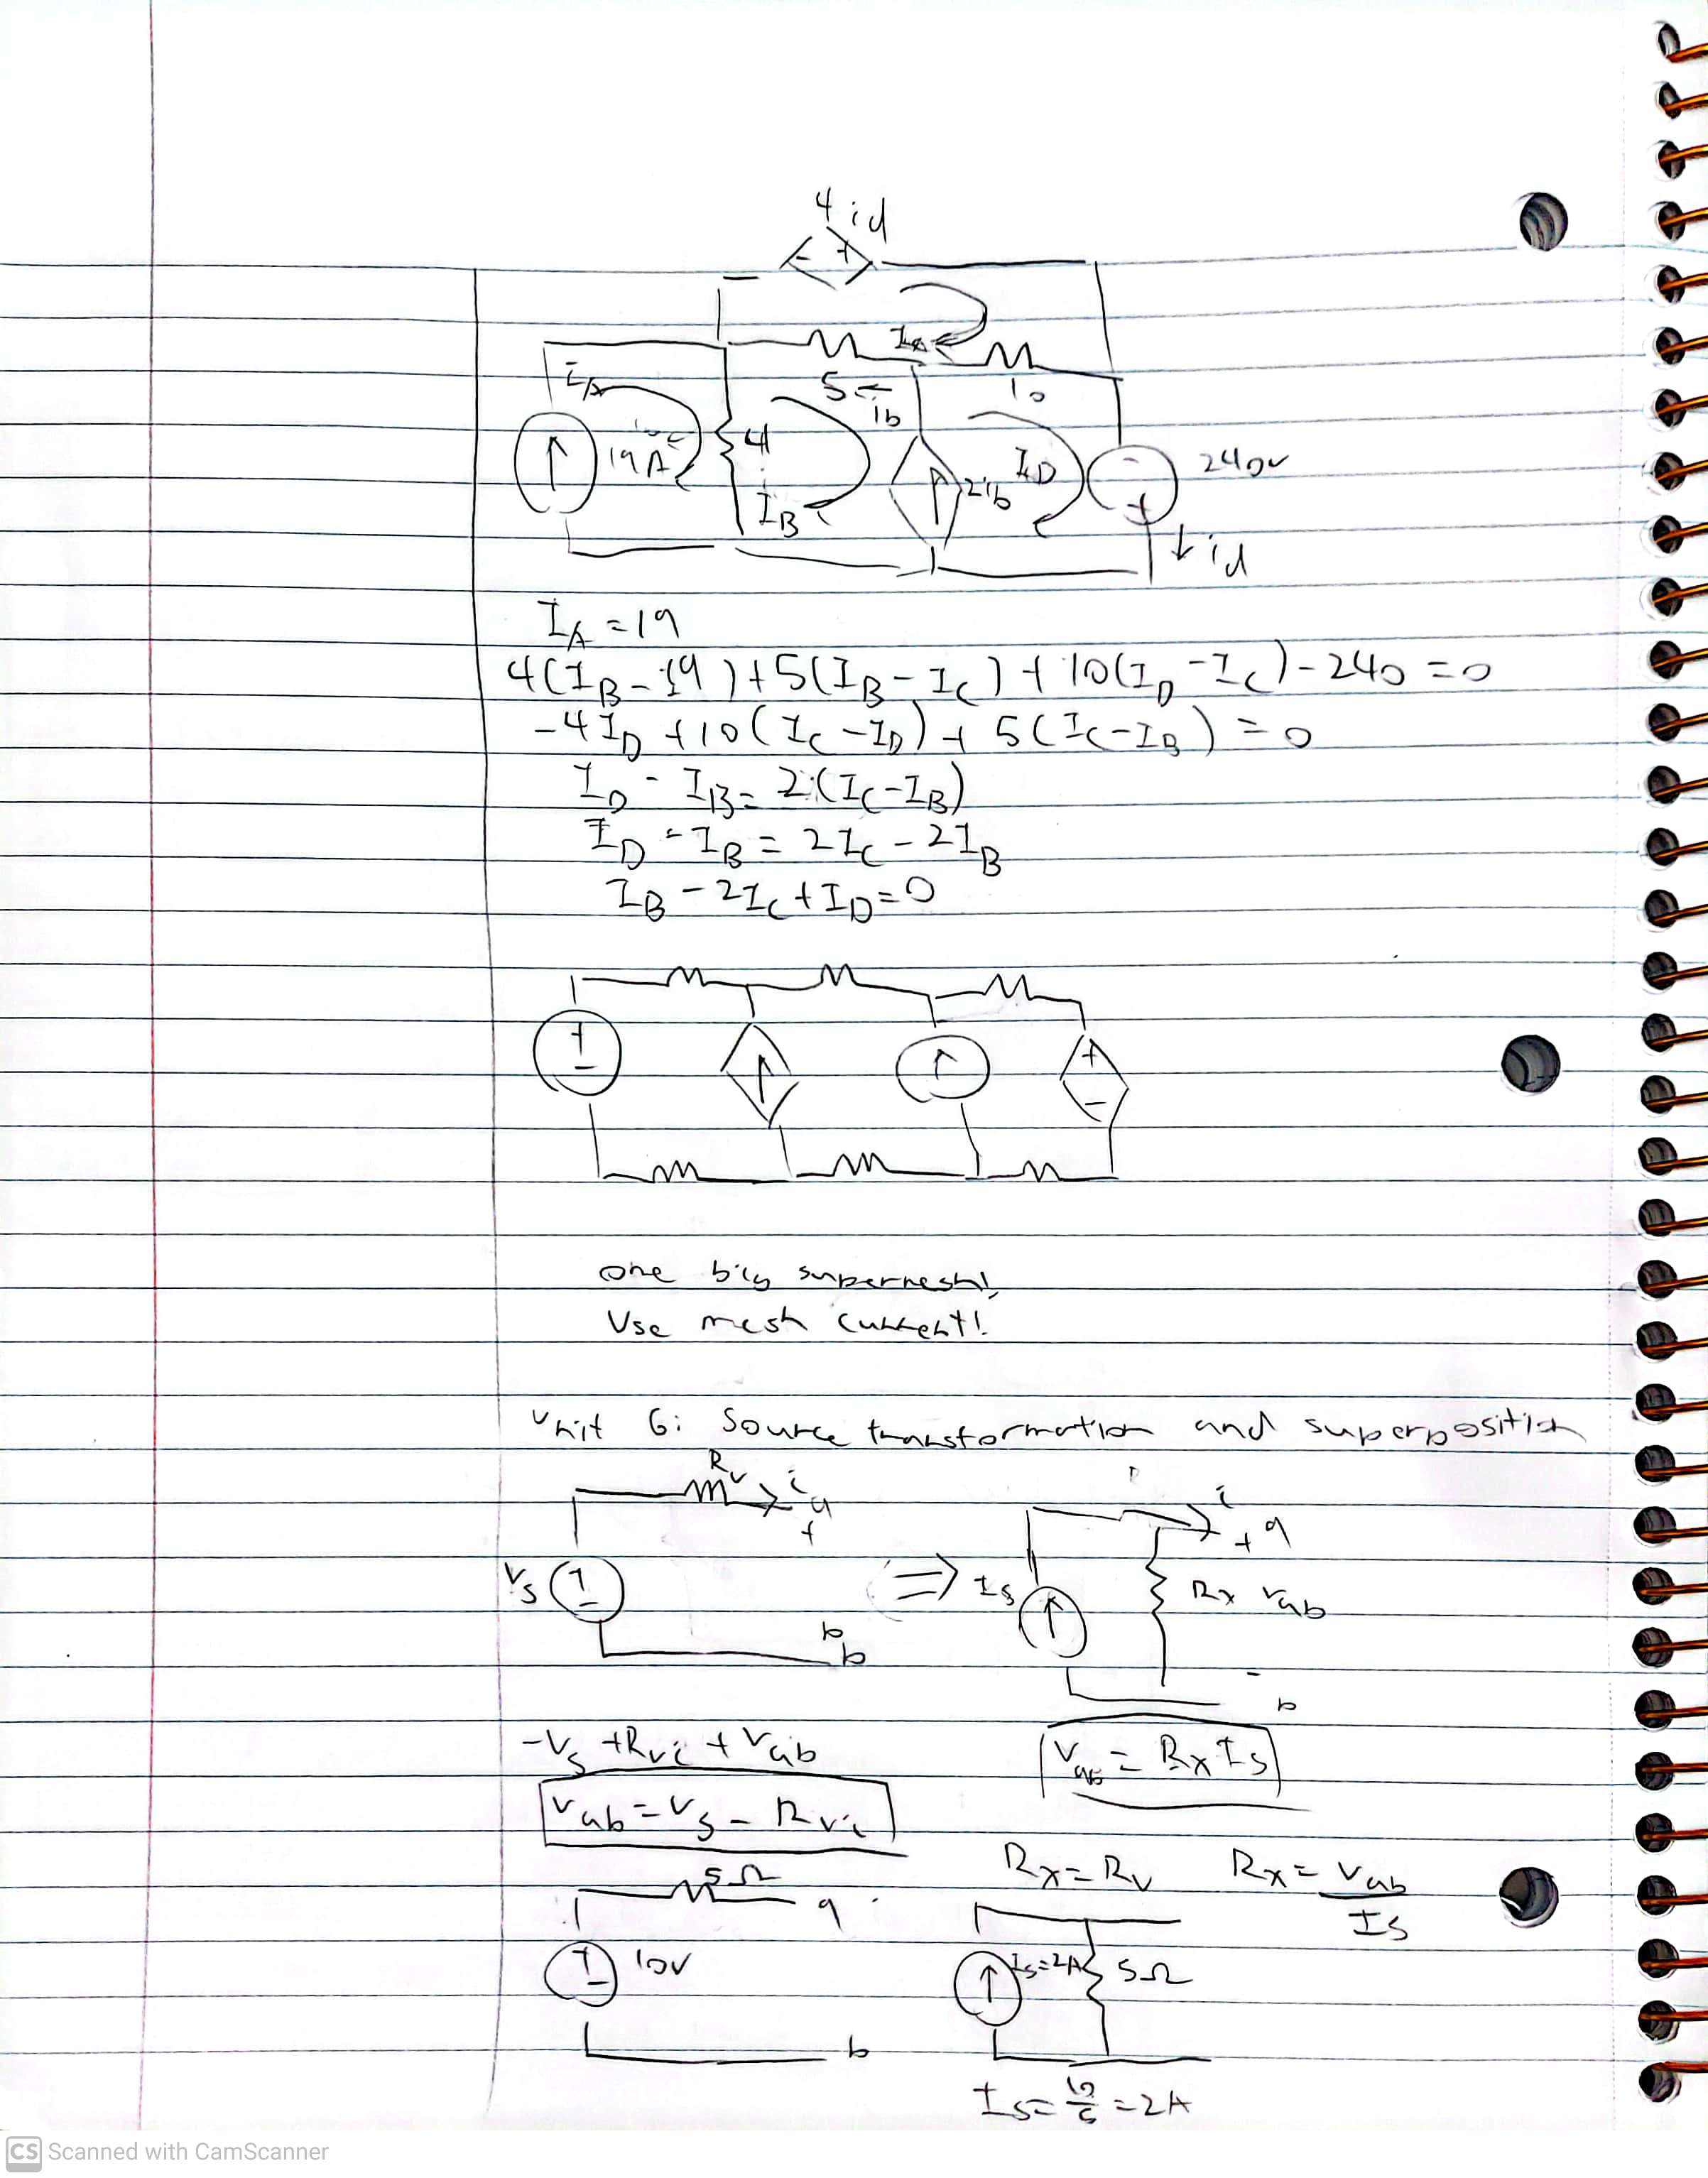 4id
- +
Ic
5 ← ib
10
iA
19A
4
IB
2ib
ID
- +
240v
↓ id
IA = 19
4(IB - 19) + 5(IB - Ic) + 10(ID - Ic) - 240 = 0
-4ID + 10(Ic - ID) + 5(Ic - IB) = 0
ID - IB = 2(Ic - IB)
ID - IB = 2Ic - 2IB
IB - 2Ic + ID = 0
+ -
+ -
one big supermesh!
Use mesh current!
Unit 6: Source transformation and superposition
Rv i a +
Vs + -
b
b
⇒
i + a
Is
Rx Vab
-
b
-Vs + Rvi + Vab
Vab = Vs - Rvi
Vab = RxIs
Rx = Rv Rx = Vab/Is
5Ω
a
10v
b
Is=2A 5Ω
Is = 10/5 = 2A
CS Scanned with CamScanner